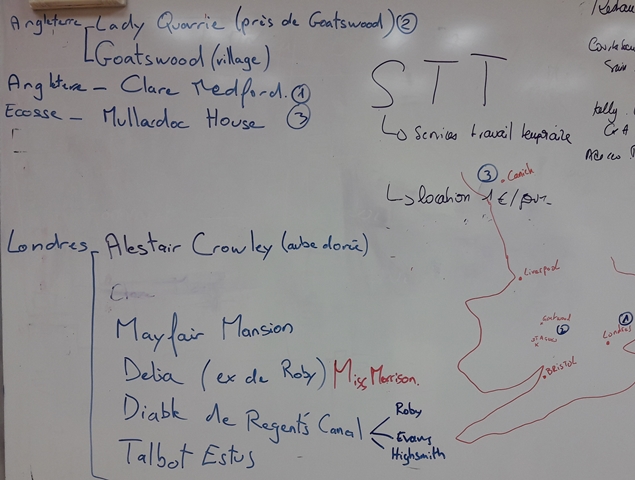 Angleterre - Lady Quarrie (près de Goatswood) 2
Goatswood (village)
Angleterre - Clare Medford. 1
Ecosse - Mullardoc House 3
STT
↳ Services travail temporaire
↳ location 1 €/jour
Londres - Alestair Crowley (aube dorée)
Mayfair Mansion
Delia (ex de Roby) Miss Morrison.
Diable de Regent's Canal
Roby
Evans
Highsmith
Talbot Estus
3
Liverpool
2
1
Londres
BRISTOL
Kelly